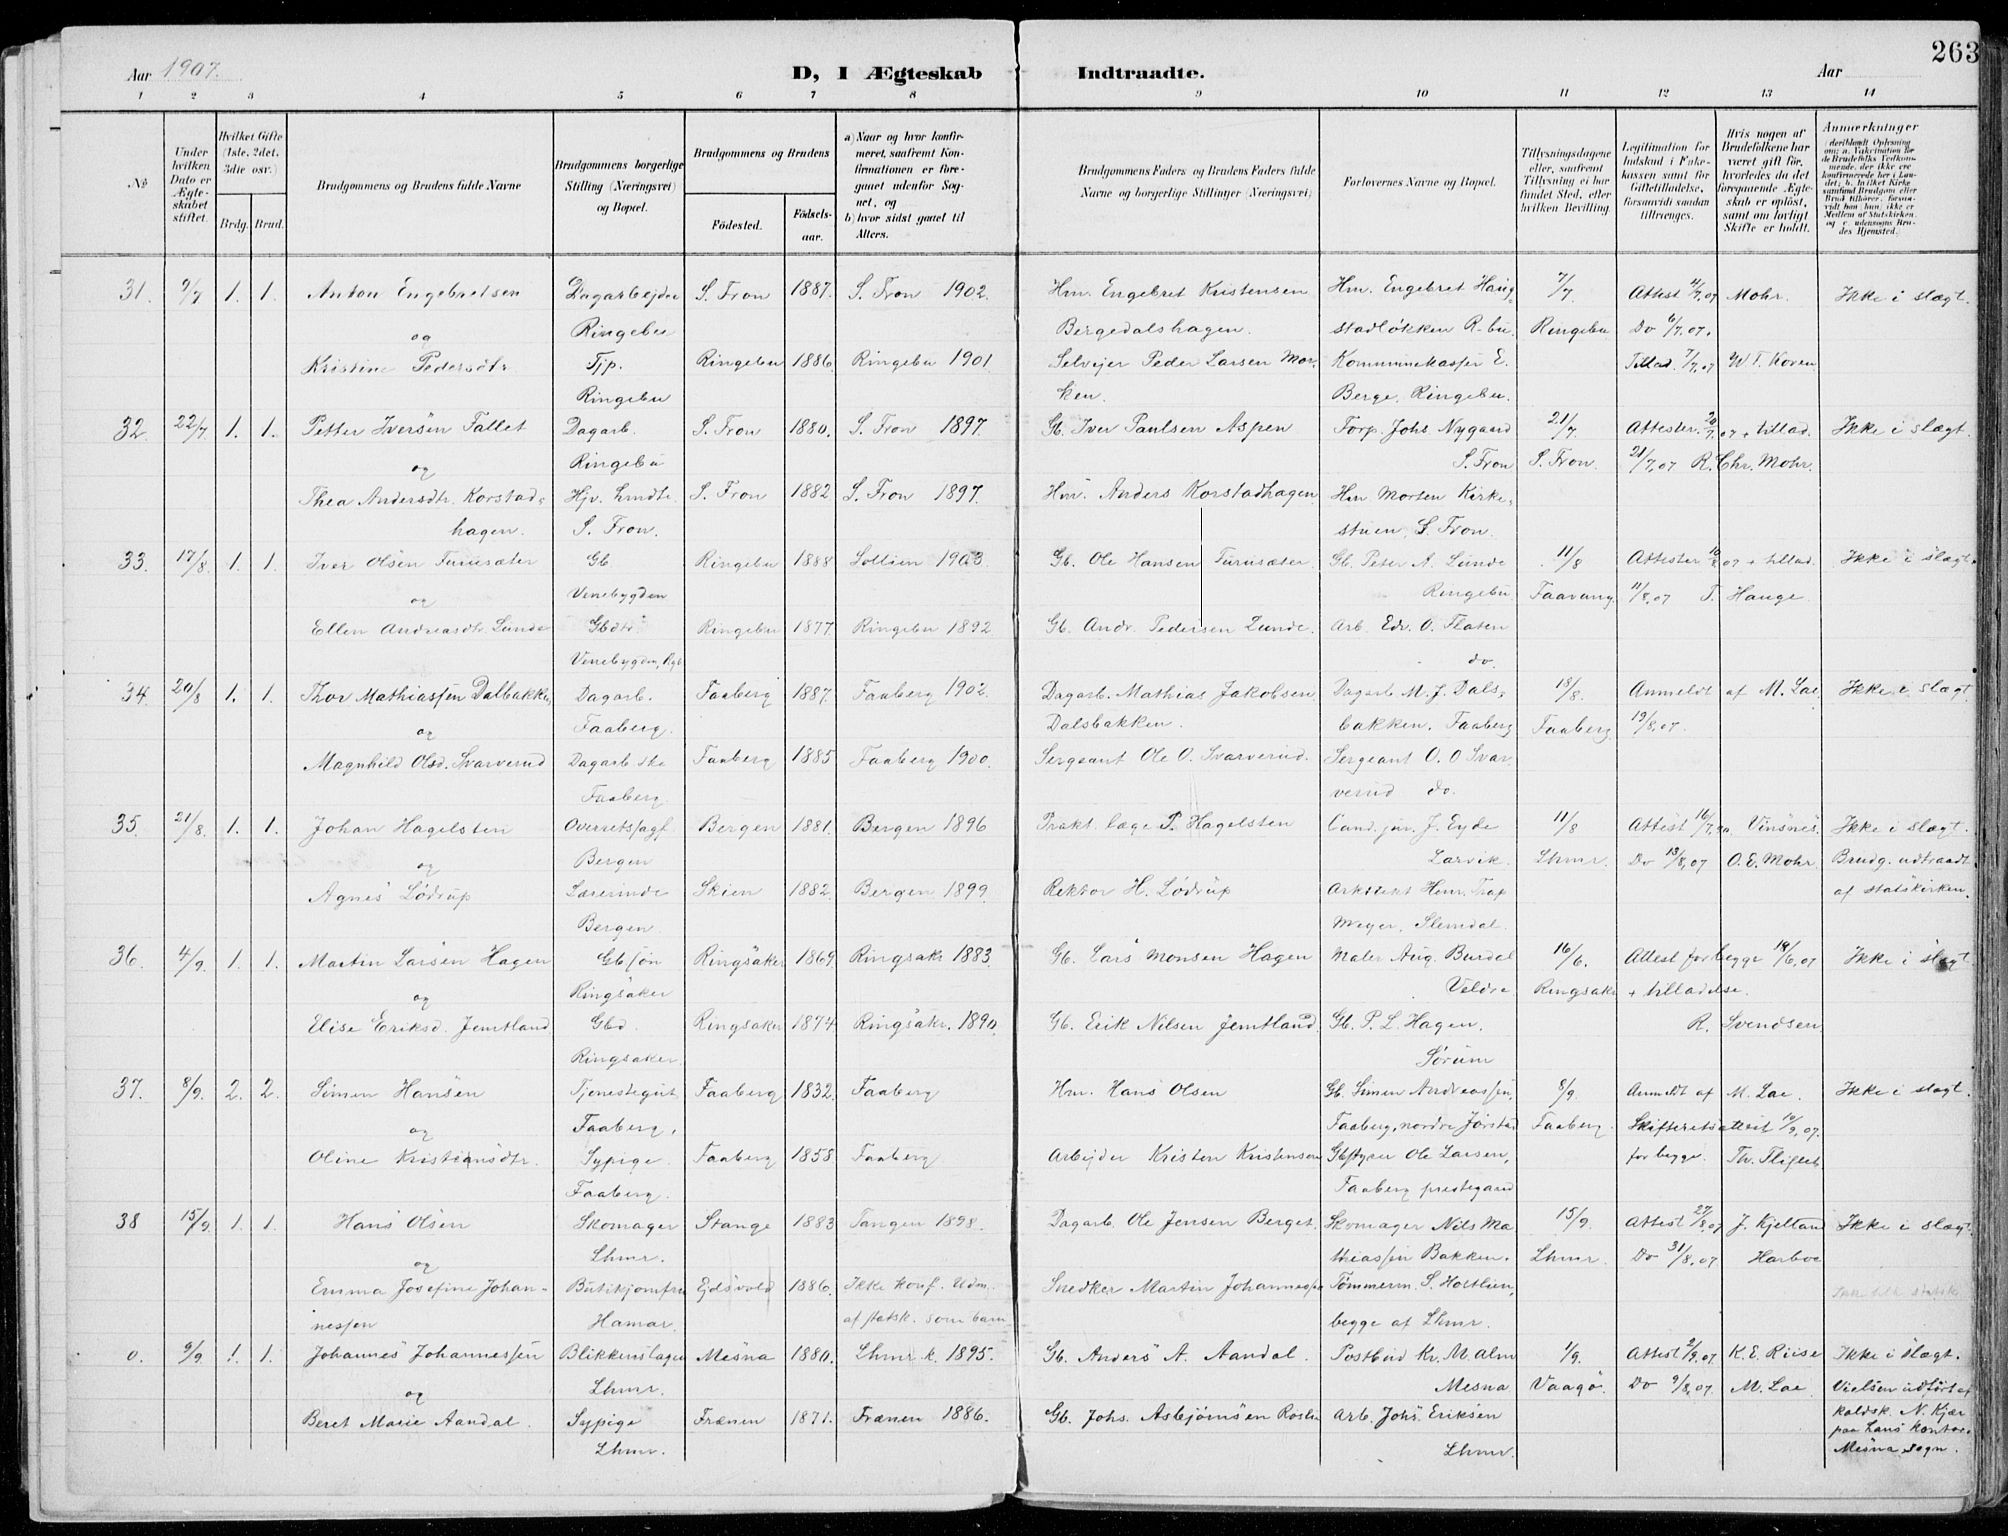 263
Aar 1907.
D, I Ægteskab Indtraadte.
Aar
1 2 3 4 5 6 7 8 9 10 11 12 13 14
No
Under hvilken Dato er Ægteskabet stiftet.
Hvilket Gifte (1ste, 2det, 3die osv.)
Brdg. Brud.
Brudgommens og Brudens fulde Navne
Brudgommens borgerlige Stilling (Næringsvei) og Bopæl.
Brudgommens og Brudens
Fødested.
Fødselsaar.
a) Naar og hvor konfirmeret, saafremt Konfirmationen er foregaaet udenfor Sognet, og
b) hvor sidst gaaet til Alters.
Brudgommens Faders og Brudens Faders fulde Navne og borgerlige Stillinger (Næringsvei)
Forlovernes Navne og Bopæl.
Tillysningsdagene eller, saafremt Tillysning ei har fundet Sted, efter hvilken Bevilling.
Legitimation for Indskud i Enkekassen samt for Giftetilladelse, forsaavidt saadan tiltrænges.
Hvis nogen af Brudefolkene har været gift før, hvorledes da det foregaaende Ægteskab er opløst, samt om lovligt Skifte er holdt.
Anmerkninger
31. 9/7 1. 1. Anton Engebretsen Dagarbejder S. Fron 1887. S. Fron 1902. Hm. Engebret Kristensen Hm. Engebret Haug= 7/7 Attest 4/7,07 Mohr. Ikke i slægt.
og Ringebu Bergedalshagen. stadløkken R-bu. Ringebu Do 6/7,07.
Kristine Pedersdtr Tjp. Ringebu 1886. Ringebu 1901 Selvejer Peder Larsen Mor- Kommunekasser E. Tillad. 7/7,07 W. T. Koren
Ringebu ken. Berge, Ringebu.
32. 22/7 1. 1. Petter Iversen Fallet Dagarb. S. Fron 1880. S. Fron 1897. Gb. Iver Paulsen Aspen Forp. Johs Nygaard 21/7. Attester 20/7,07 + tillad. Ikke i slægt.
og Ringebu S. Fron S. Fron. 21/7,07 R. Chr. Mohr.
Thea Andersdtr. Korstad= S. Fron 1882 S. Fron 1897. Hm. Anders Korstadhagen Hm Morten Kirke=
hagen. S. Fron. stuen, S. Fron.
33. 17/8. 1. 1. Iver Olsen Furusæter Gb Ringebu 1888 Sollien 1903. Gb. Ole Hansen Furusæter Gb. Peter A. Lunde 11/8 Attester 10/8,07 + tillad. Ikke i slægt.
og Venebygden Ringebu Faavang 11/8,07 T. Hauge.
Ellen Andreasdtr. Lunde Gbdtr Ringebu 1877. Ringebu 1892 Gb. Andr. Pedersen Lunde. Arb. Edv. O. Flaten
Venebygden, Rgb do.
34. 20/8 1. 1. Thor Mathiassen Dalbakken, Dagarb. Faaberg 1887. Faaberg 1902. Dagarb. Mathias Jakobsen Dagarb M. J. Dals= 18/8. Anmeldt af M. Lae Ikke i slægt
og Faaberg. Dalsbakken. bakken, Faaberg Faaberg 19/8,07.
Magnhild Olsd. Svarverud Dagarb.ske Faaberg 1885 Faaberg 1900. Sergeant Ole O. Svarverud. Sergeant O. O Svar-
Faaberg verud do.
35. 21/8. 1. 1. Johan Hagelsten Overretssagf. Bergen 1881. Bergen 1896 Prakt. læge P. Hagelsten Cand. jur. J. Eyde 11/8 Attest 16/7 Vinsnes. Ikke i slægt.
og Bergen Larvik. Lhmr. Do 13/8,07 O. E. Mohr Brudg. udtraadt
Agnes Lødrup Lærerinde Skien 1882. Bergen 1899. Rektor H. Lødrup Arkitekt Henr. Trap af statskirken.
Bergen. Meyer, Slemdal.
36. 4/9. 1. 1. Martin Larsen Hagen Gbsøn Ringsaker 1869. Ringsakr 1883. Gb. Lars Monsen Hagen Maler Aug. Burdal 16/6. Attest for begge 18/6,07 Ikke i slægt
og Ringsaker Veldre Ringsaker + tilladelse.
Elise Eriksd. Jemtland Gbd. Ringsaker 1874. Ringsakr. 1890. Gb. Erik Nilsen Jemtland Gb. P. L. Hagen, R. Svendsen
Ringsaker Sørum
37. 8/9. 2. 2. Simen Hansen Tjenestegut Faaberg 1832. Faaberg Hm. Hans Olsen Gb. Simen Andreassen, 8/9. Anmeldt af M. Lae. Ikke i slægt.
og Faaberg. Faaberg, nordre Jørstad Faaberg. Skifteretsattest 10/9,07.
Oline Kristiansdtr. Sypige Faaberg 1858 Faaberg Arbejder Kristen Kristensen Gbstyrer Ole Larsen, for begge. Th.
Faaberg. Faaberg prestegaard
38 15/9. 1. 1. Hans Olsen Skomager Stange 1883 Tangen 1898. Dagarb. Ole Jensen Berget. Skomager Nils Ma 15/9. Attest 27/8,07 J. Kjelland Ikke i slægt.
og Lhmr. thiassen Bakken. Lhmr. Do 31/8,07 Harboe
Emma Josefine Johan- Butikjomfru Ejdsvold 1886. Ikke konf. Udm. Snedker Martin Johannessen Tømmerm. S. Hortlien, Ikke tilh. statsk.
nessen Hamar. af statsk. som barn begge af Lhmr.
0. 9/9. 1. 1. Johannes Johannessen Blikkenslager Mesna 1880. Lhmr k. 1895. Gb. Anders A. Aandal. Postbud Kr. Malm 1/9. Attest 2/9,07. K. E. Riise Ikke i slægt.
og Lhmr. Mesna Vaagø. Do 9/8,07. M. Lae Vielsen udført af
Beret Marie Aandal. Sypige Frænen 1871. Frænen 1886. Gb. Johs. Asbjørnsen Arb. Johs. Eriksen kaldsk. N. Kjær
Lhmr. Lhmr. paa Lans kontor.
Mesna sogn.